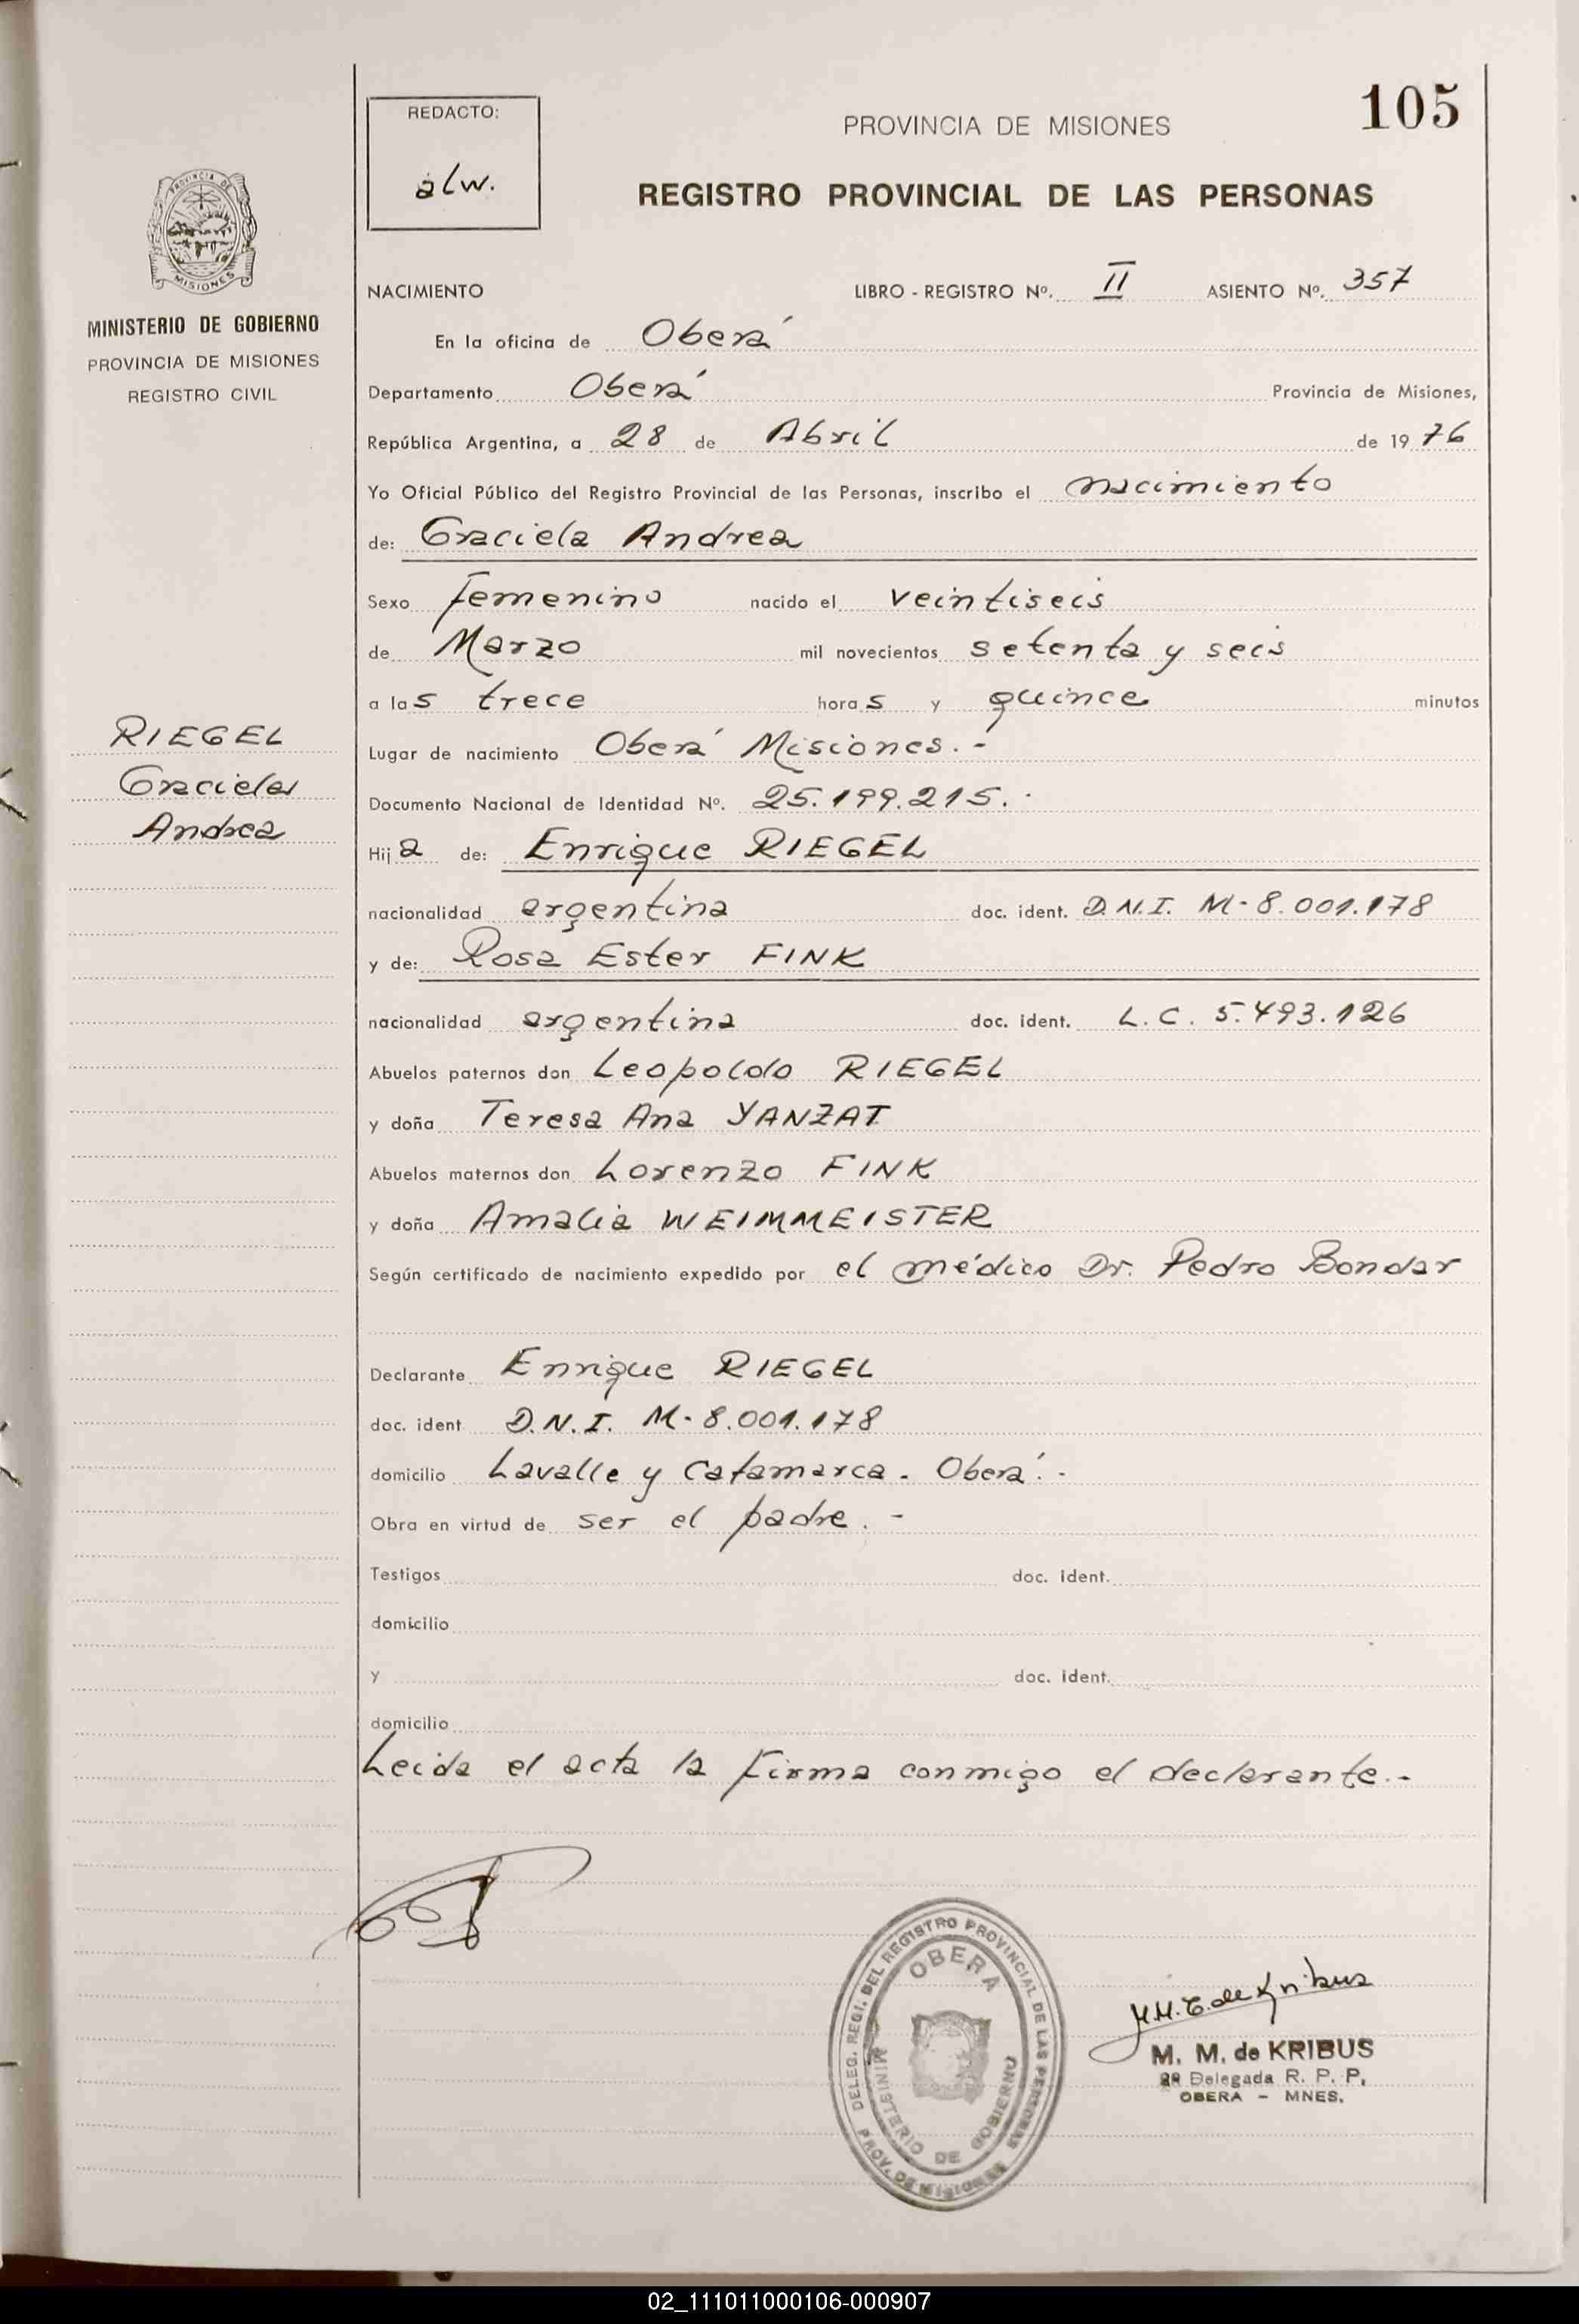 105
REDACTO:
alw.
PROVINCIA DE MISIONES
REGISTRO PROVINCIAL DE LAS PERSONAS
PROVINCIA DE
MISIONES
MINISTERIO DE GOBIERNO
PROVINCIA DE MISIONES
REGISTRO CIVIL
RIEGEL
Graciela
Andrea
NACIMIENTO LIBRO - REGISTRO Nº. II ASIENTO Nº. 357
En la oficina de Oberá
Departamento Oberá Provincia de Misiones,
República Argentina, a 28 de Abril de 19 76
Yo Oficial Público del Registro Provincial de las Personas, inscribo el nacimiento
de: Graciela Andrea
Sexo femenino nacido el veintiseis
de Marzo mil novecientos setenta y seis
a las trece horas y quince minutos
Lugar de nacimiento Oberá Misiones.-
Documento Nacional de Identidad Nº. 25.199.215.-
Hija de: Enrique RIEGEL
nacionalidad argentina doc. ident. D.N.I. M-8.001.178
y de: Rosa Ester FINK
nacionalidad argentina doc. ident. L.C. 5.493.126
Abuelos paternos don Leopoldo RIEGEL
y doña Teresa Ana YANZAT
Abuelos maternos don Lorenzo FINK
y doña Amalia WEIMMEISTER
Según certificado de nacimiento expedido por el médico Dr. Pedro Bondar
Declarante Enrique RIEGEL
doc. ident D.N.I. M-8.001.178
domicilio Lavalle y Catamarca. Oberá.-
Obra en virtud de ser el padre.-
Testigos doc. ident.
domicilio
y doc. ident.
domicilio
Leida el acta la firma conmigo el declarante.-
DELEG. REGI. DEL REGISTRO PROVINCIAL DE LAS PERSONAS
OBERA
MINISTERIO DE GOBIERNO
PROV. DE MISIONES
M.M.E. de Kribus
M. M. de KRIBUS
Delegada R. P. P.
OBERA - MNES.
02_111011000106-000907